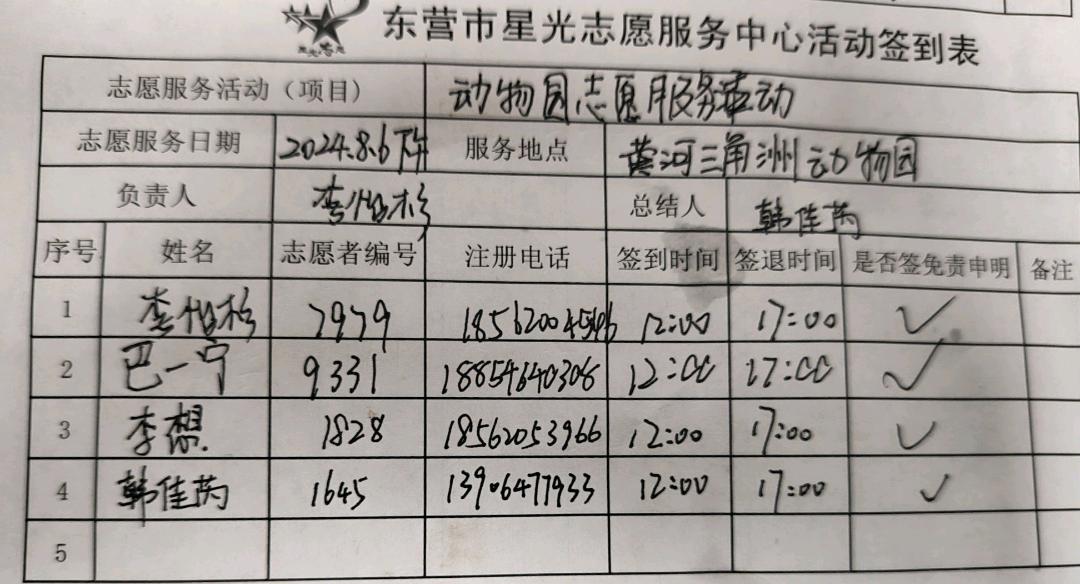 东营市星光志愿服务中心活动签到表
志愿服务活动（项目） 动物园志愿服务活动
志愿服务日期 2024.8.6下午 服务地点 黄河三角洲动物园
负责人 李怡杉 总结人 韩佳芮
序号 姓名 志愿者编号 注册电话 签到时间 签退时间 是否签免责申明 备注
1 李怡杉 7979 12:00 17:00 ✓
2 巴一宁 9331 18854640308 12:00 17:00 ✓
3 李想 1828 18562053966 12:00 17:00 ✓
4 韩佳芮 1645 13906477933 12:00 17:00 ✓
5